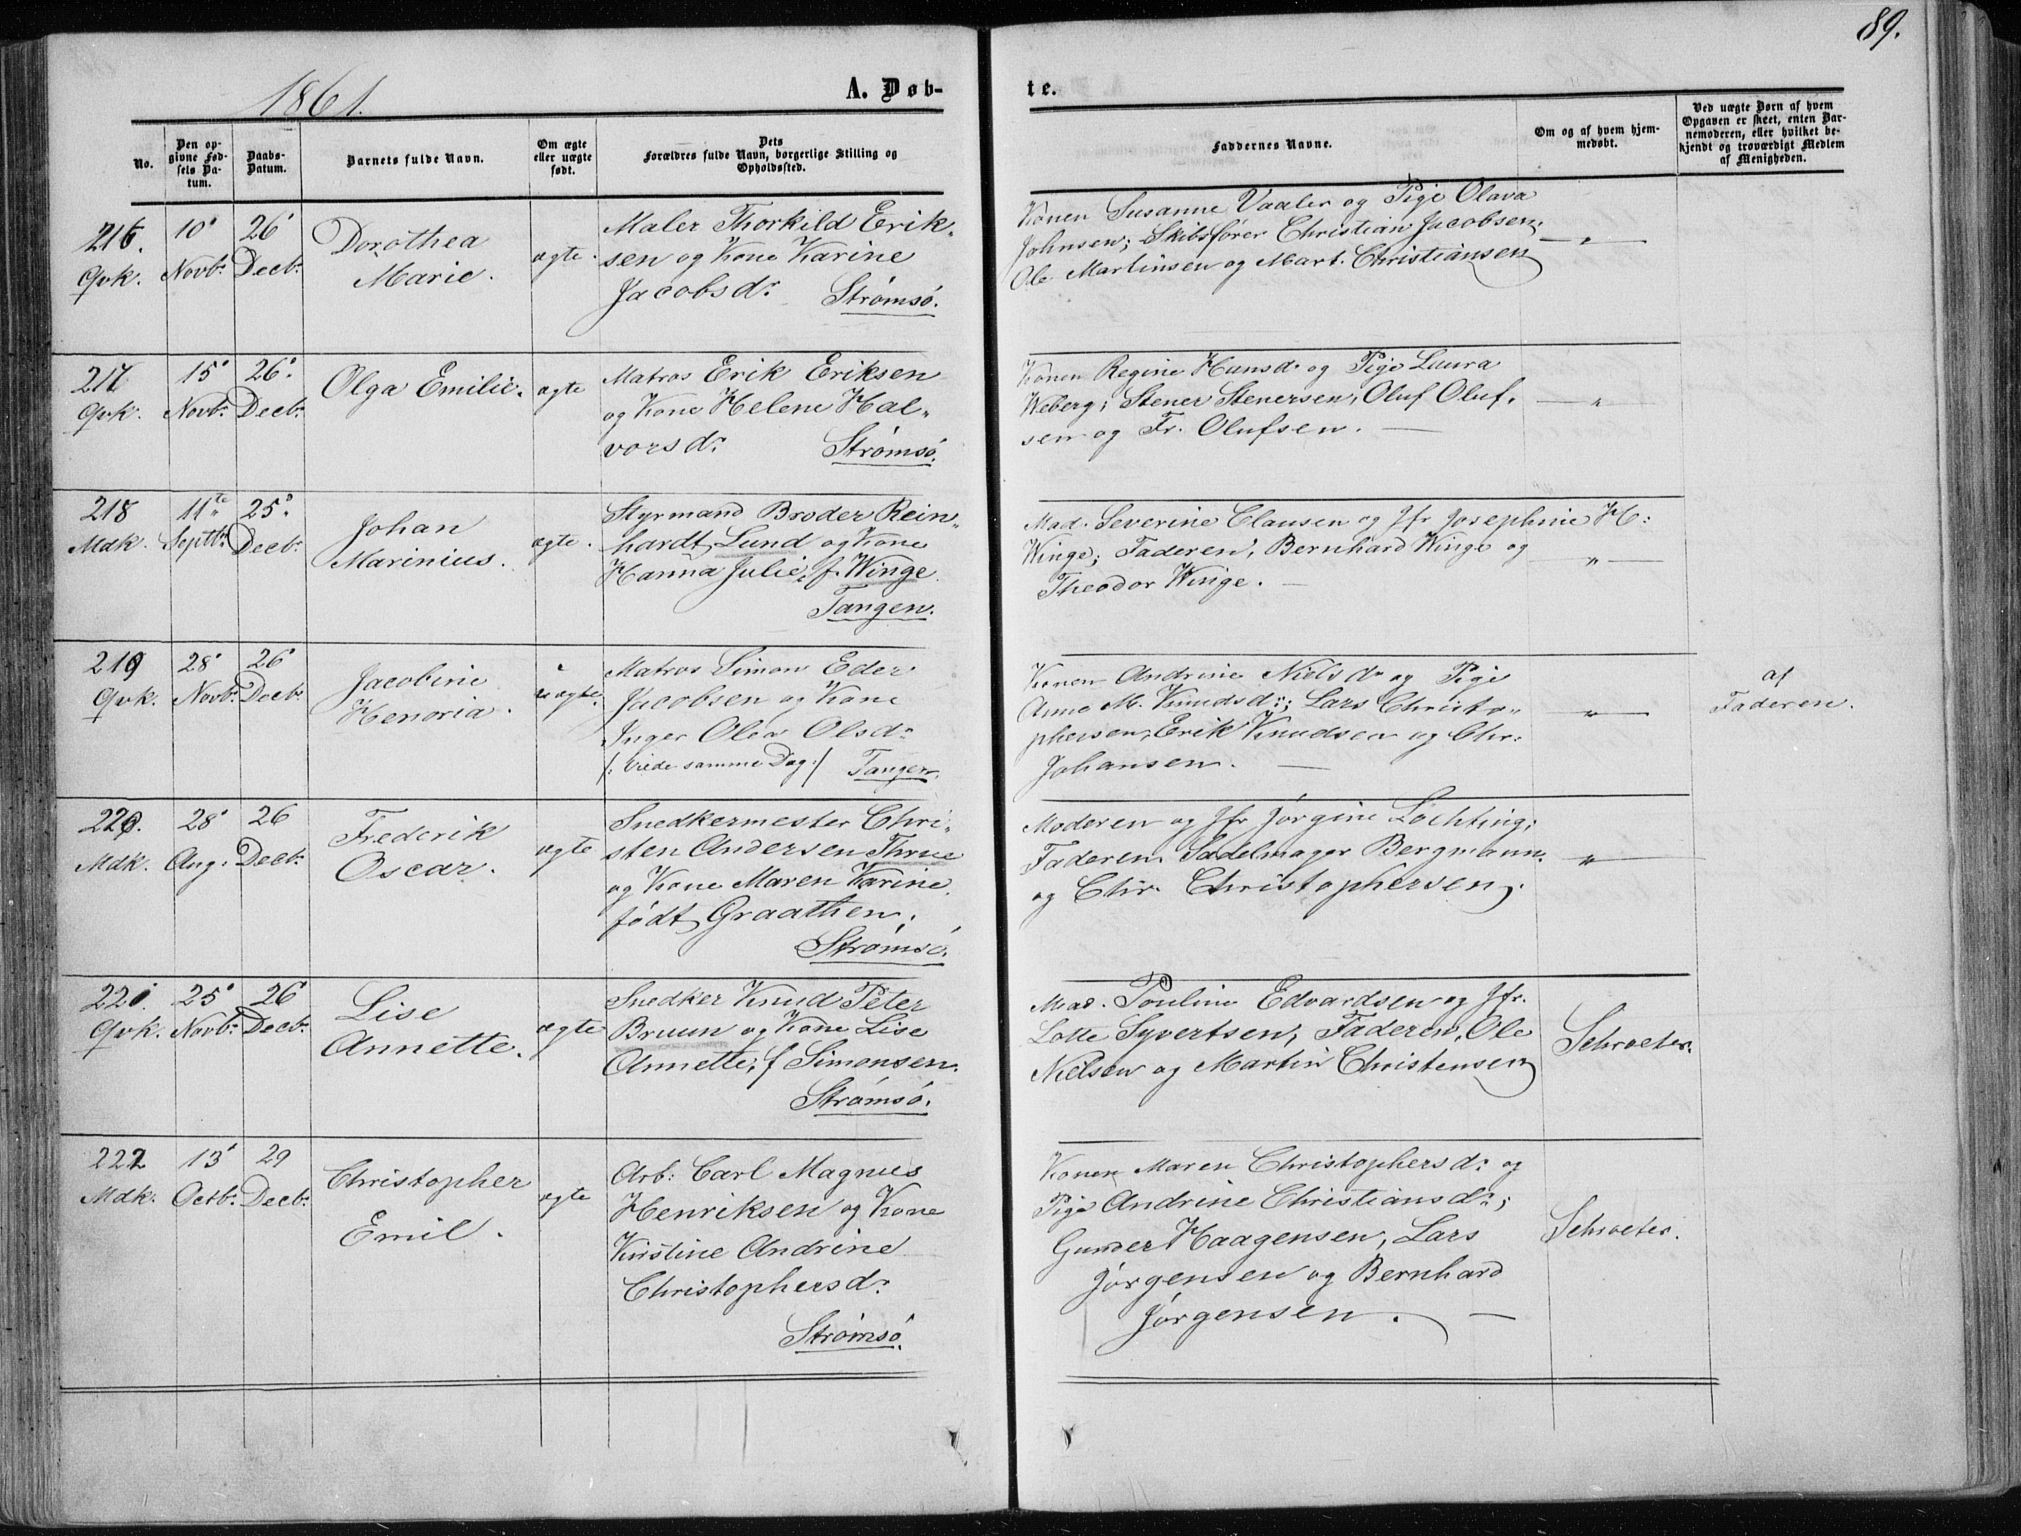 89.
1861.
A. Døb-
te.
No.
Den op-
givne Fød-
sels Da-
tum.
Daabs-
Datum.
Barnets fulde Navn.
Om ægte
eller uægte
født.
Dets
Forældres fulde Navn, borgerlige Stilling og
Opholdssted.
Faddernes Navne.
Om og af hvem hjem-
medøbt.
Ved uægte Børn af hvem
Opgaven er skeet, enten Bar-
nemoderen, eller hvilket be-
kjendt og troværdigt Medlem
af Menigheden.
216.
Qvk.
10'
Novbr.
26'
Decbr.
Dorothea
Marie.
ægte.
Maler Thorkild Erik-
sen og Kone Karine
Jacobsdr.
Strømsö.
Konen Susanne Vaaler og Pige Olava
Johnsen; Skibsfører Christian Jacobsen,
Ole Martinsen og Mart. Christiansen
— " —
217
Qvk.
15'
Novbr.
26'
Decbr.
Olga Emilie.
ægte
Matros Erik Eriksen
og Kone Helene Hal-
vorsdr.
Strømsö.
Konen Regine Hansdr. og Pige Laura
Weberg; Stener Stenersen, Oluf Oluf-
sen og Fr. Olufsen. —
— "
218
Mdk.
11te
Septbr.
25'
Decbr.
Johan
Marinius.
ægte.
Styrmand Broder Rein-
hardt Lund og Kone
Hanna Julie, f. Winge
Tangen.
Mad. Severine Clausen og Jfr Josephine H:
Winge; Faderen, Bernhard Winge og
Theodor Winge. —
— " —
219
Qvk.
28'
Novbr.
26'
Decbr.
Jacobine
Henoria.
uægte.
Matros Simon Eder
Jacobsen og Kone
Inger Olea Olsdr.
/: Viede samme Dag :/ Tangen.
Konen Andrine Nielsdr og Pige
Anne M. Knudsdr.; Lars Christo-
phersen, Erik Knudsen og Chr.
Johansen. —
— " —
af
Faderen.
220.
Mdk.
28'
Aug.
26
Decbr.
Frederik
Oscar.
ægte
Snedkermester Chri-
sten Andersen Thrue
og Kone Maren Karine
født Graathen.
Strømsö.
Moderen og Jfr Jörgine Lochting;
Faderen, Sadelmager Bergmann
og Chr. Christophersen.
— " —
221
Qvk.
25'
Novbr.
26'
Decbr.
Lise
Annette.
ægte
Snedker Knud Peter
Bruun og Kone Lise
Annette, f Simonsen.
Strømsö.
Mad. Pouline Edvardsen og Jfr.
Lotte Syvertsen; Faderen, Ole
Nielsen og Martin Christensen
Schroeter.
222
Mdk.
13'
Octbr.
29
Decbr.
Christopher
Emil.
ægte
Arb: Carl Magnus
Henriksen og Kone
Kirstine Andrine
Christophersdr.
Strømsö.
Konen Maren Christophersdr. og
Pige Andrine Christiansdr.;
Gunder Haagensen, Lars
Jörgensen og Bernhard
Jörgensen. —
Schroeter.